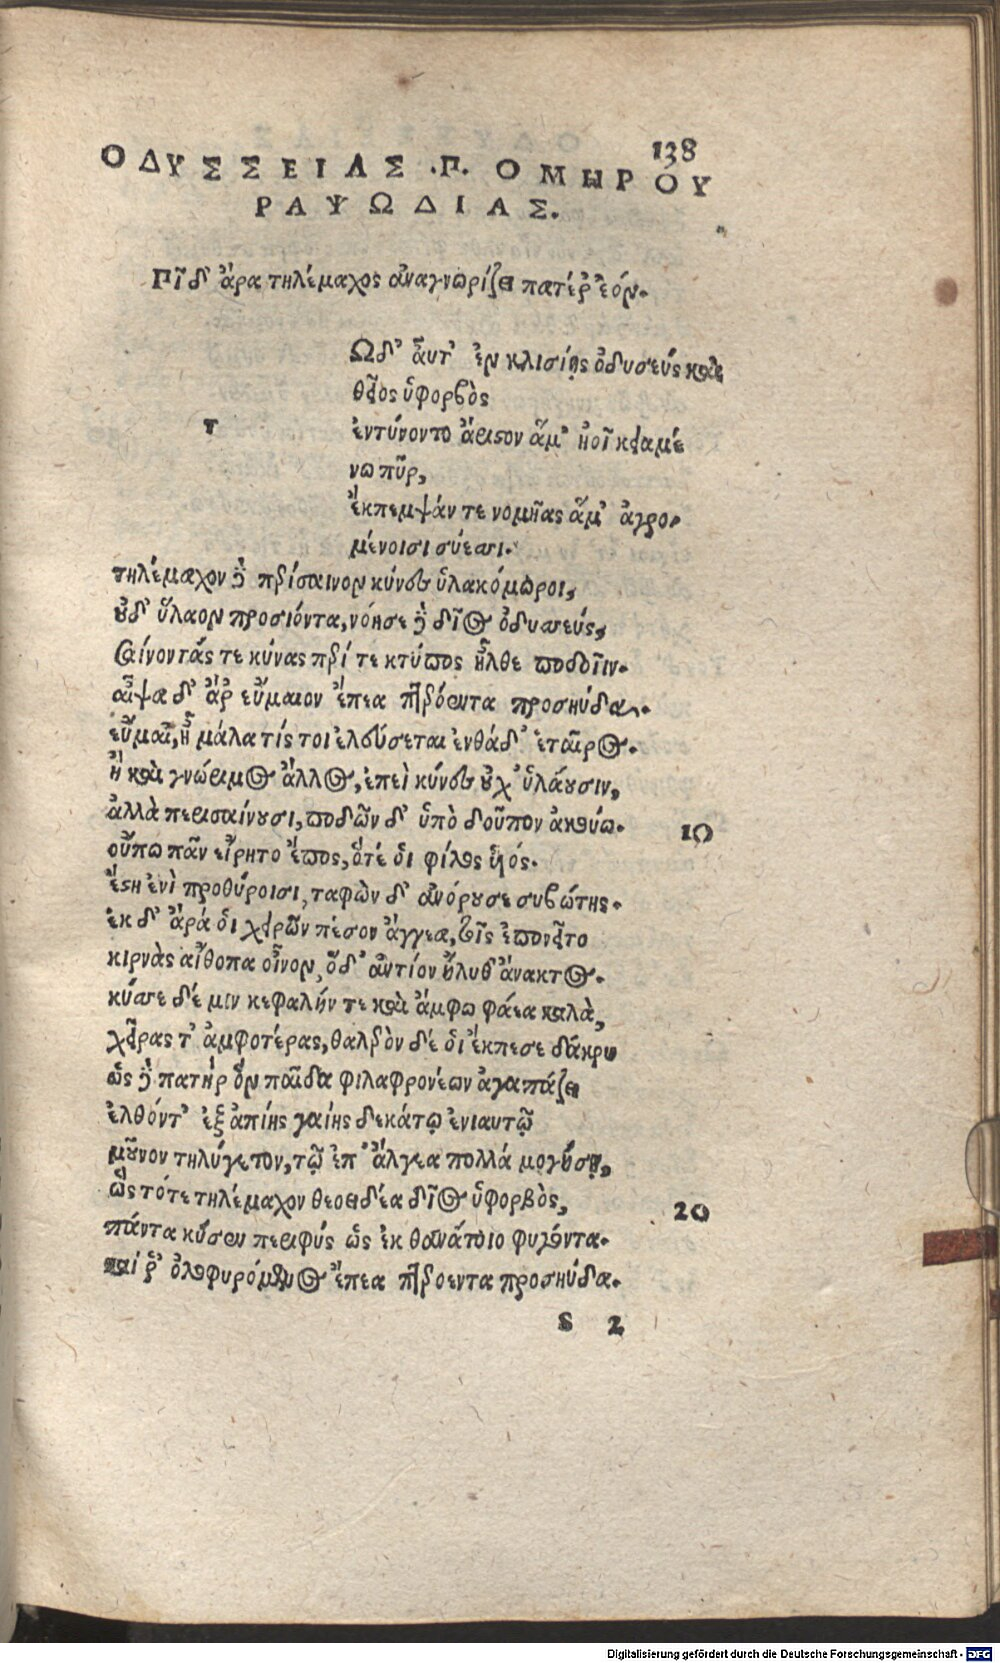 138
ΟΔΥΣΣΕΙΑΣ .Π. ΟΜΗΡΟΥ
ΡΑΨΩΔΙΑΣ.
Πῖ δ' ἄρα τηλέμαχος ἀναγνωρίζει πατέρ' ἑόν.
Ωδ' αὖτ' ἐν κλισίῃς ὀδυσεύς καὶ
θεῖος ὑφορβὸς
τ
ἐντύνοντο ἄριστον ἅμ' ἠοῖ κειαμέ
νω πῦρ,
ἔκπεμψάν τε νομῆας ἅμ' ἀγρο-
μένοισι σύεσσι.
τηλέμαχον δὲ περίσαινον κύνες ὑλακόμωροι,
οὐδ' ὕλαον προσιόντα, νόησε δὲ δῖος ὀδυσσεύς,
Σαίνοντάς τε κύνας περί τε κτύπος ἦλθε ποδοῖιν.
αἶψα δ' ἄρ' εὔμαιον ἔπεα πτερόεντα προσηύδα.
εὔμαι', ἦ μάλα τίς τοι ἐλεύσεται ἐνθάδ' ἑταῖρος.
ἢ καὶ γνώριμος ἄλλος, ἐπεὶ κύνες οὐχ' ὑλάουσιν,
ἀλλὰ περισαίνουσι, ποδῶν δ' ὑπὸ δοῦπον ἀκούω.
10
οὔπω πᾶν εἴρητο ἔπος, ὅτέ οἱ φίλος υἱός.
ἔστη ἐνὶ προθύροισι, ταφὼν δ' ἀνόρουσε συβώτης.
ἐκ δ' ἄρά οἱ χειρῶν πέσον ἄγγεα, τοῖς ἐπονεῖτο
κιρνὰς αἴθοπα οἶνον, ὅδ' ἀντίον ἤλυθ' ἄνακτος.
κύσσε δέ μιν κεφαλήν τε καὶ ἄμφω φάεα καλὰ,
χεῖρας τ' ἀμφοτέρας, θαλερὸν δέ οἱ ἔκπεσε δάκρυ
ὡς δὲ πατὴρ ὃν παῖδα φιλαφρονέων ἀγαπάζει
ἐλθόντ' ἐξ ἀπίης γαίης δεκάτῳ ἐνιαυτῷ
μοῦνον τηλύγετον, τῷ ἐπ' ἄλγεα πολλά μογήσῃ,
ὣς τότε τηλέμαχον θεοειδέα δῖος ὑφορβὸς,
20
πάντα κύσεν περιφύς ὡς ἐκ θανάτοιο φυγόντα.
καί ῥ' ὀλοφυρόμενος ἔπεα πτερόεντα προσηύδα.
S 2
Digitalisierung gefördert durch die Deutsche Forschungsgemeinschaft - DFG